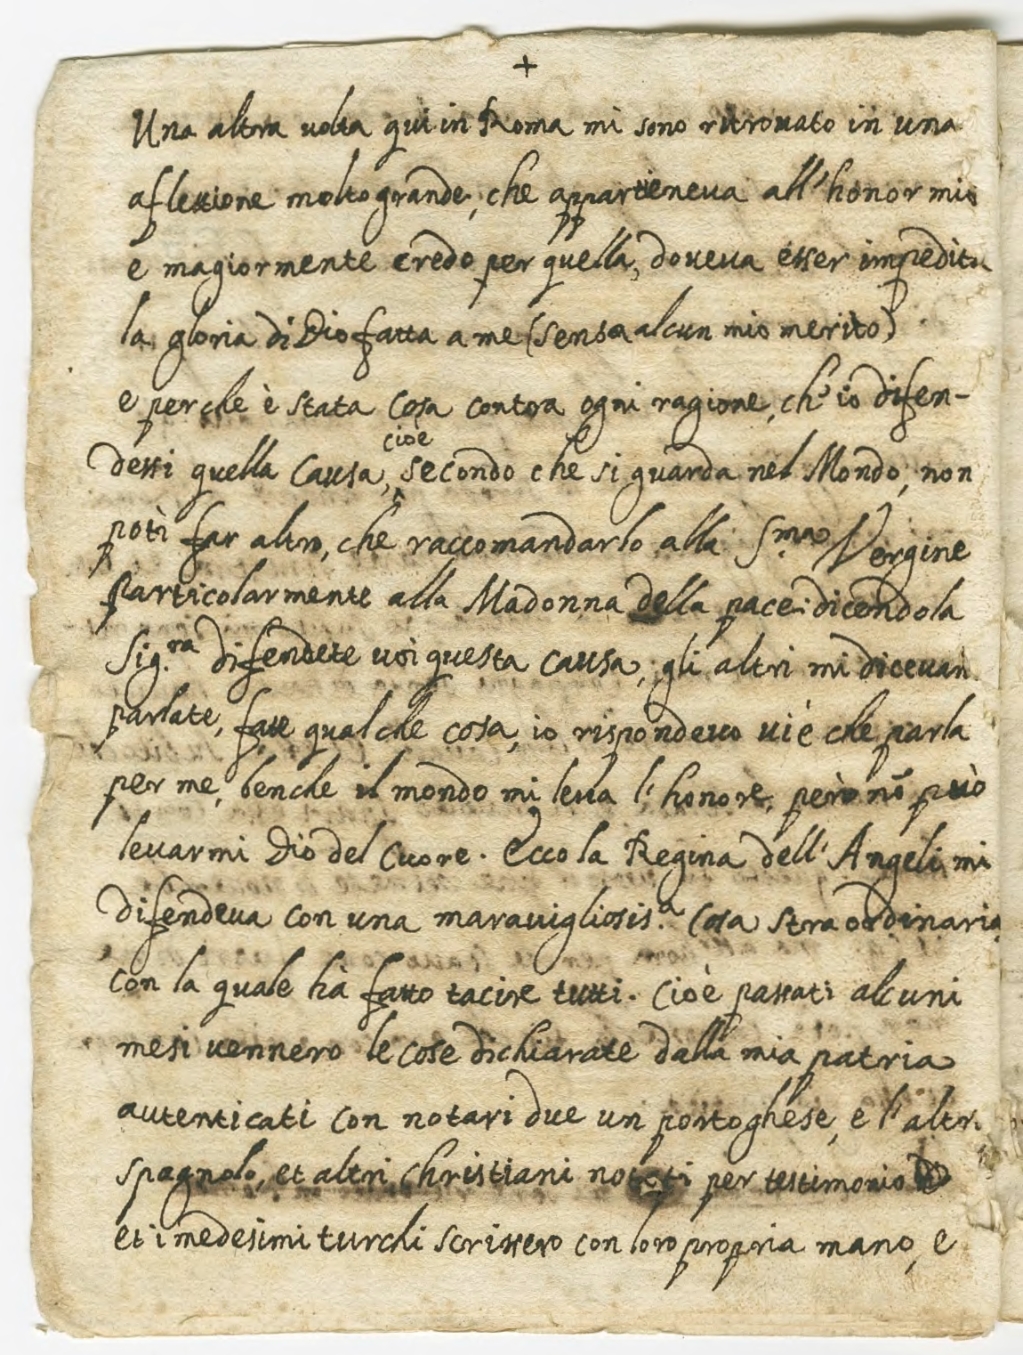 +
Una altra uolta qui in Roma mi sono ritrouato in una
aflettione molto grande, che apparteneua all'honor mio
e magiormente credo per quella, doueua esser impedita
la gloria di Dio fatta a me (sensa alcun mio merito)
e perche è stata cosa contra ogni ragione, ch'io difen-
dessi quella causa, cioe secondo che si guarda nel Mondo, non
potì far altro, che raccomandarlo alla S.ma Vergine
particolarmente alla Madonna della pace: dicendola
Sig.ra difendete uoi questa causa, gli altri mi diceuan
parlate, fate qualche cosa, io rispondeuo ui è che parla
per me, benche il mondo mi leua l'honore, però nõ può
leuarmi Dio del cuore. Ecco la Regina dell'Angeli mi
difendeua con una marauigliosis.a cosa straordinaria
con la quale hà fatto tacire tutti. Cioè passati alcuni
mesi uennero le cose dichiarate dalla mia patria
autenticati con notari due un portoghese, e l'altr
spagnolo, et altri christiani notati per testimonio
et i medesimi turchi scrissero con loro propria mano, e